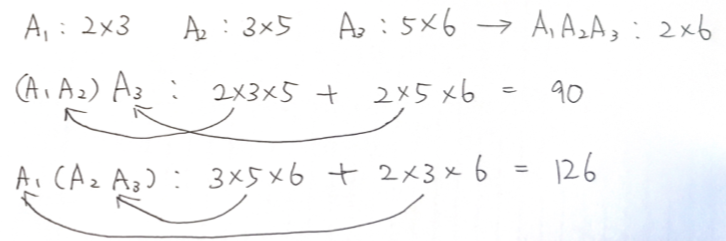 A₁ : 2×3 A₂ : 3×5 A₃ : 5×6 → A₁A₂A₃ : 2×6
(A₁A₂) A₃ : 2×3×5 + 2×5×6 = 90
A₁ (A₂ A₃) : 3×5×6 + 2×3×6 = 126